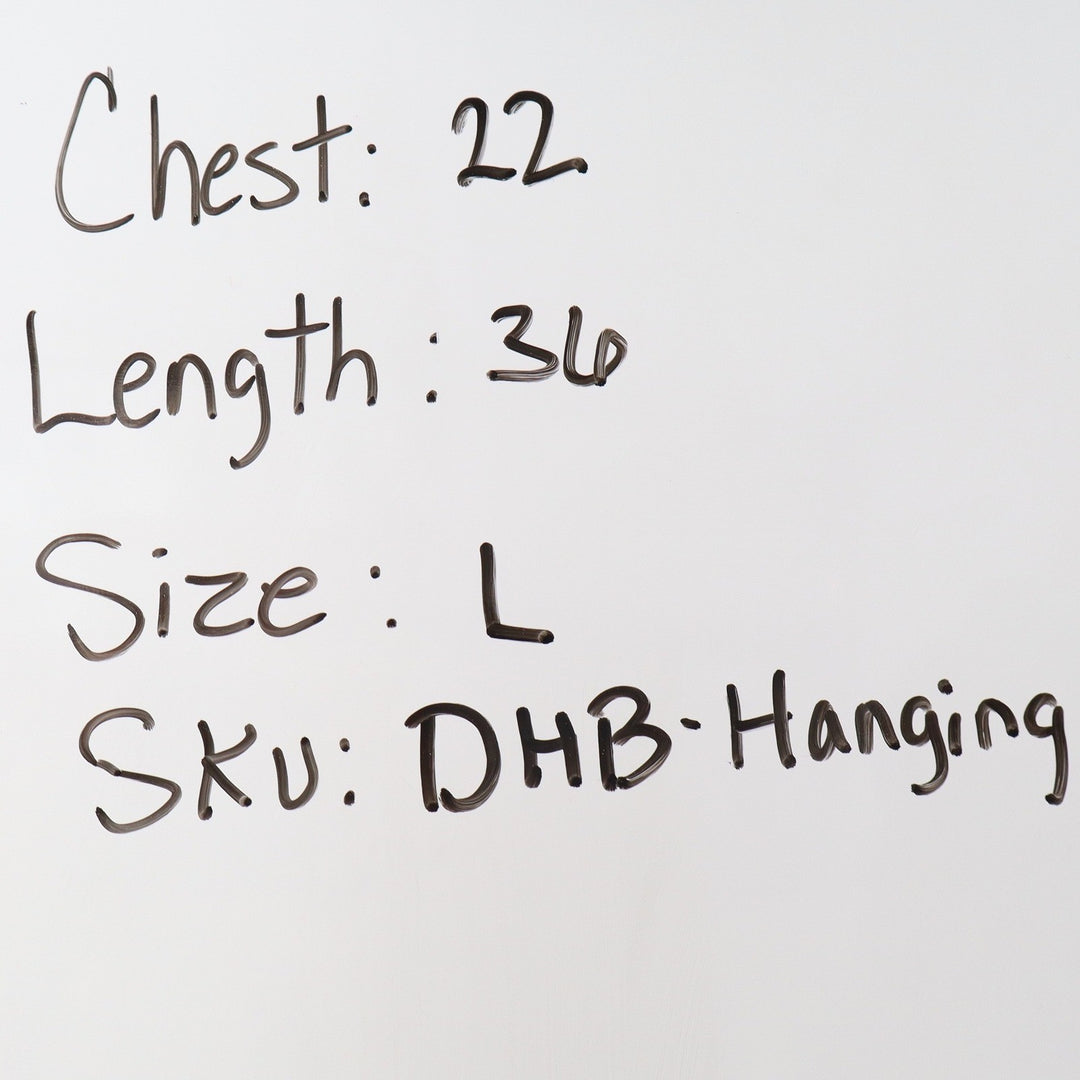 Chest: 22
Length: 36
Size: L
SKU: DHB-Hanging